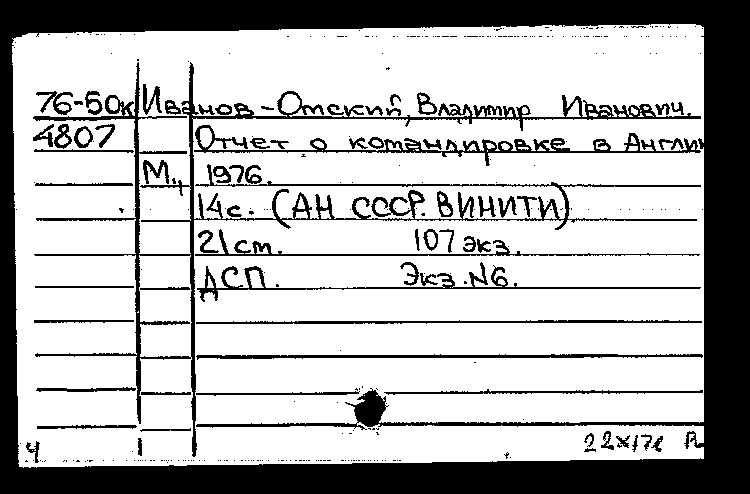 76-50к Иванов-Омский, Владимир Иванович.
4807 Отчет о командировке в Англию
М., 1976.
14с. (АН СССР. ВИНИТИ)
21см. 107 экз.
ДСП. Экз. №6.
4 22×17г